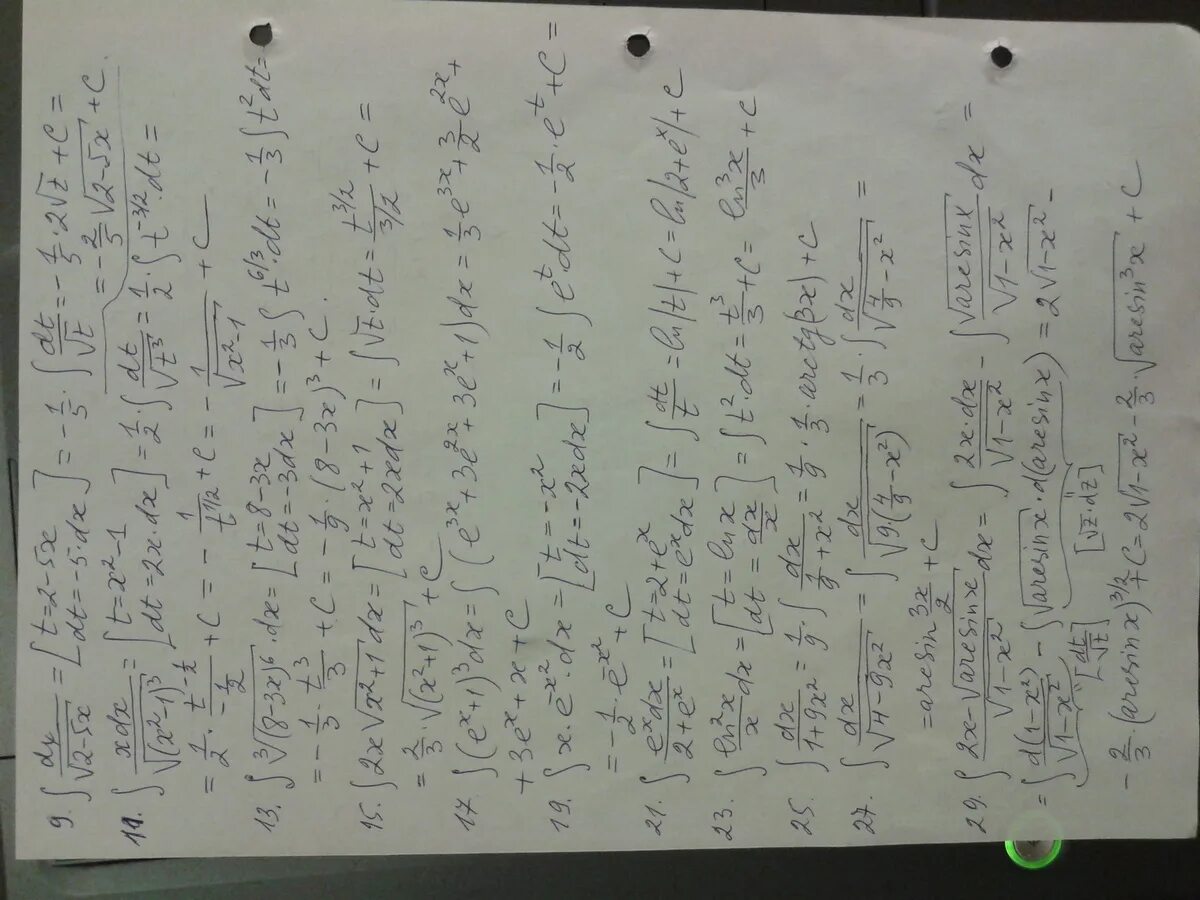 9. ∫ dx/√(2-5x) = [t=2-5x; dt=-5·dx] = -1/5 · ∫ dt/√t = -1/5 · 2√t + C =
= -2/5 √(2-5x) + C.
11. ∫ xdx/√((x²-1)³) = [t=x²-1; dt=2x·dx] = 1/2 · ∫ dt/√(t³) = 1/2 · ∫ t^(-3/2)·dt =
= 1/2 · t^(-1/2)/(-1/2) + C = - 1/t^(1/2) + C = - 1/√(x²-1) + C
13. ∫ ³√((8-3x)⁶)·dx = [t=8-3x; dt=-3dx] = -1/3 ∫ t^(6/3)·dt = -1/3 ∫ t²dt =
= -1/3 · t³/3 + C = -1/9 · (8-3x)³ + C.
15. ∫ 2x√(x²+1)dx = [t=x²+1; dt=2xdx] = ∫ √t·dt = t^(3/2)/(3/2) + C =
= 2/3 · √((x²+1)³) + C
17. ∫ (eˣ+1)³dx = ∫ (e³ˣ+3e²ˣ+3eˣ+1)dx = 1/3 e³ˣ + 3/2 e²ˣ +
+ 3eˣ + x + C
19. ∫ x·e^(-x²)·dx = [t=-x²; dt=-2xdx] = -1/2 ∫ eᵗ·dt = -1/2 · eᵗ + C =
= -1/2 · e^(-x²) + C
21. ∫ eˣdx/(2+eˣ) = [t=2+eˣ; dt=eˣdx] = ∫ dt/t = ln|t| + C = ln|2+eˣ| + C
23. ∫ ln²x/x dx = [t=ln x; dt=dx/x] = ∫ t²·dt = t³/3 + C = ln³x/3 + C
25. ∫ dx/(1+9x²) = 1/9 · ∫ dx/(1/9+x²) = 1/9 · 1/3 · arctg(3x) + C
27. ∫ dx/√(4-9x²) = ∫ dx/√(9·(4/9-x²)) = 1/3 · ∫ dx/√(4/9-x²) =
= arcsin 3x/2 + C
29. ∫ (2x-√(arcsinx))/√(1-x²) dx = ∫ 2x·dx/√(1-x²) - ∫ √(arcsinx)/√(1-x²) dx =
= ∫ d(1-x²)/√(1-x²) - ∫ √(arcsinx)·d(arcsinx) = 2√(1-x²) -
[dt/√t] [√z·dz]
- 2/3 · (arcsinx)^(3/2) + C = 2√(1-x²) - 2/3 · √(arcsin³x) + C